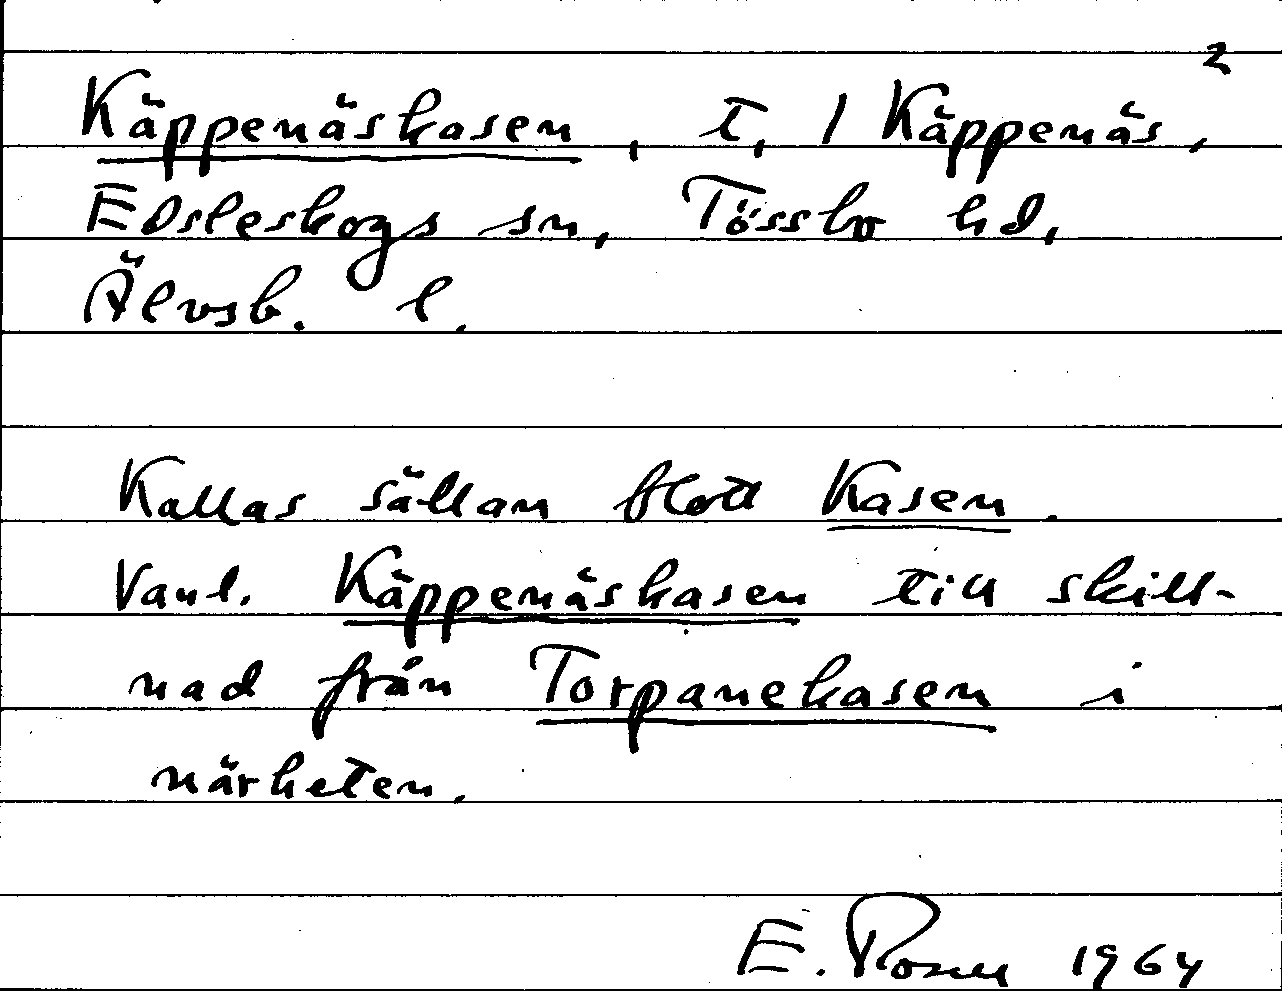 2
Käppenäskasen, t, 1 Käppenäs,
Edsleskogs sn, Tössbo hd,
Älvsb. l.
Kallas sällan blott Kasen.
Vanl. Käppenäskasen till skill-
nad från Torpanekasen i
närheten.
E. Rosen 1964